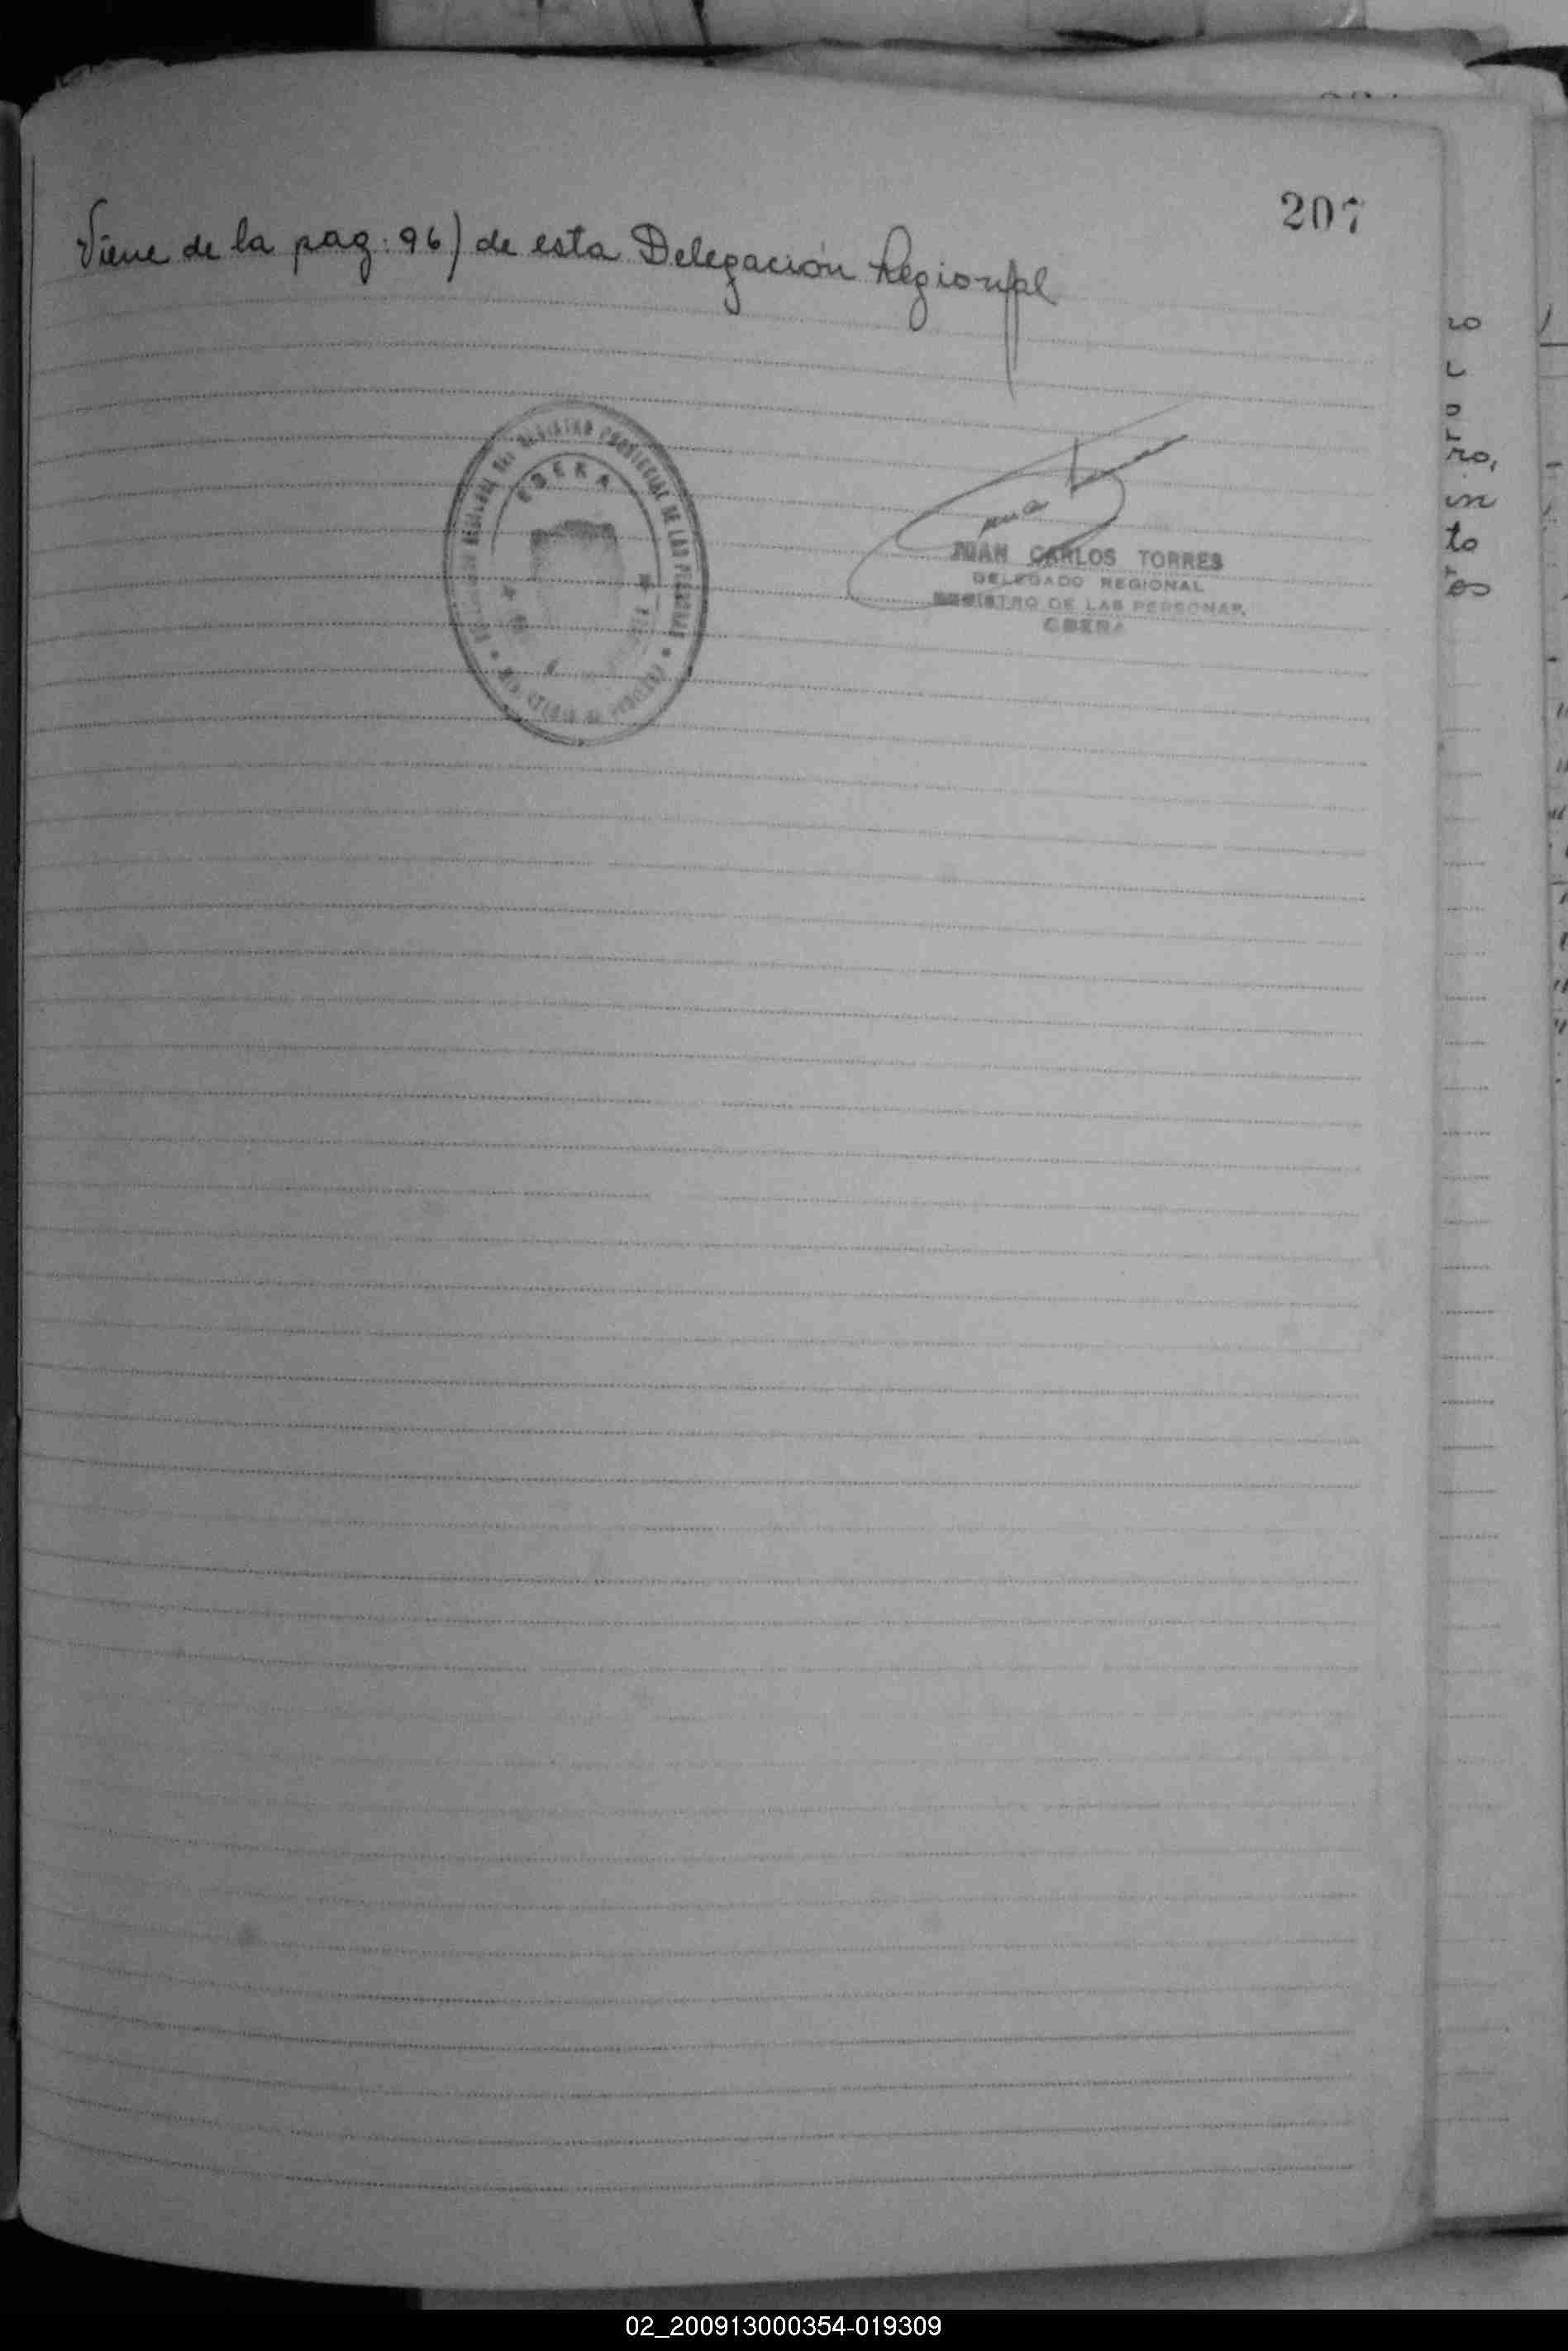 207
Viene de la pag: 96) de esta Delegación Regional
REGISTRO PROVINCIAL DE LAS PERSONAS
OBERA
JUAN CARLOS TORRES
DELEGADO REGIONAL
REGISTRO DE LAS PERSONAS
OBERA
ro,
in
to
02_200913000354-019309